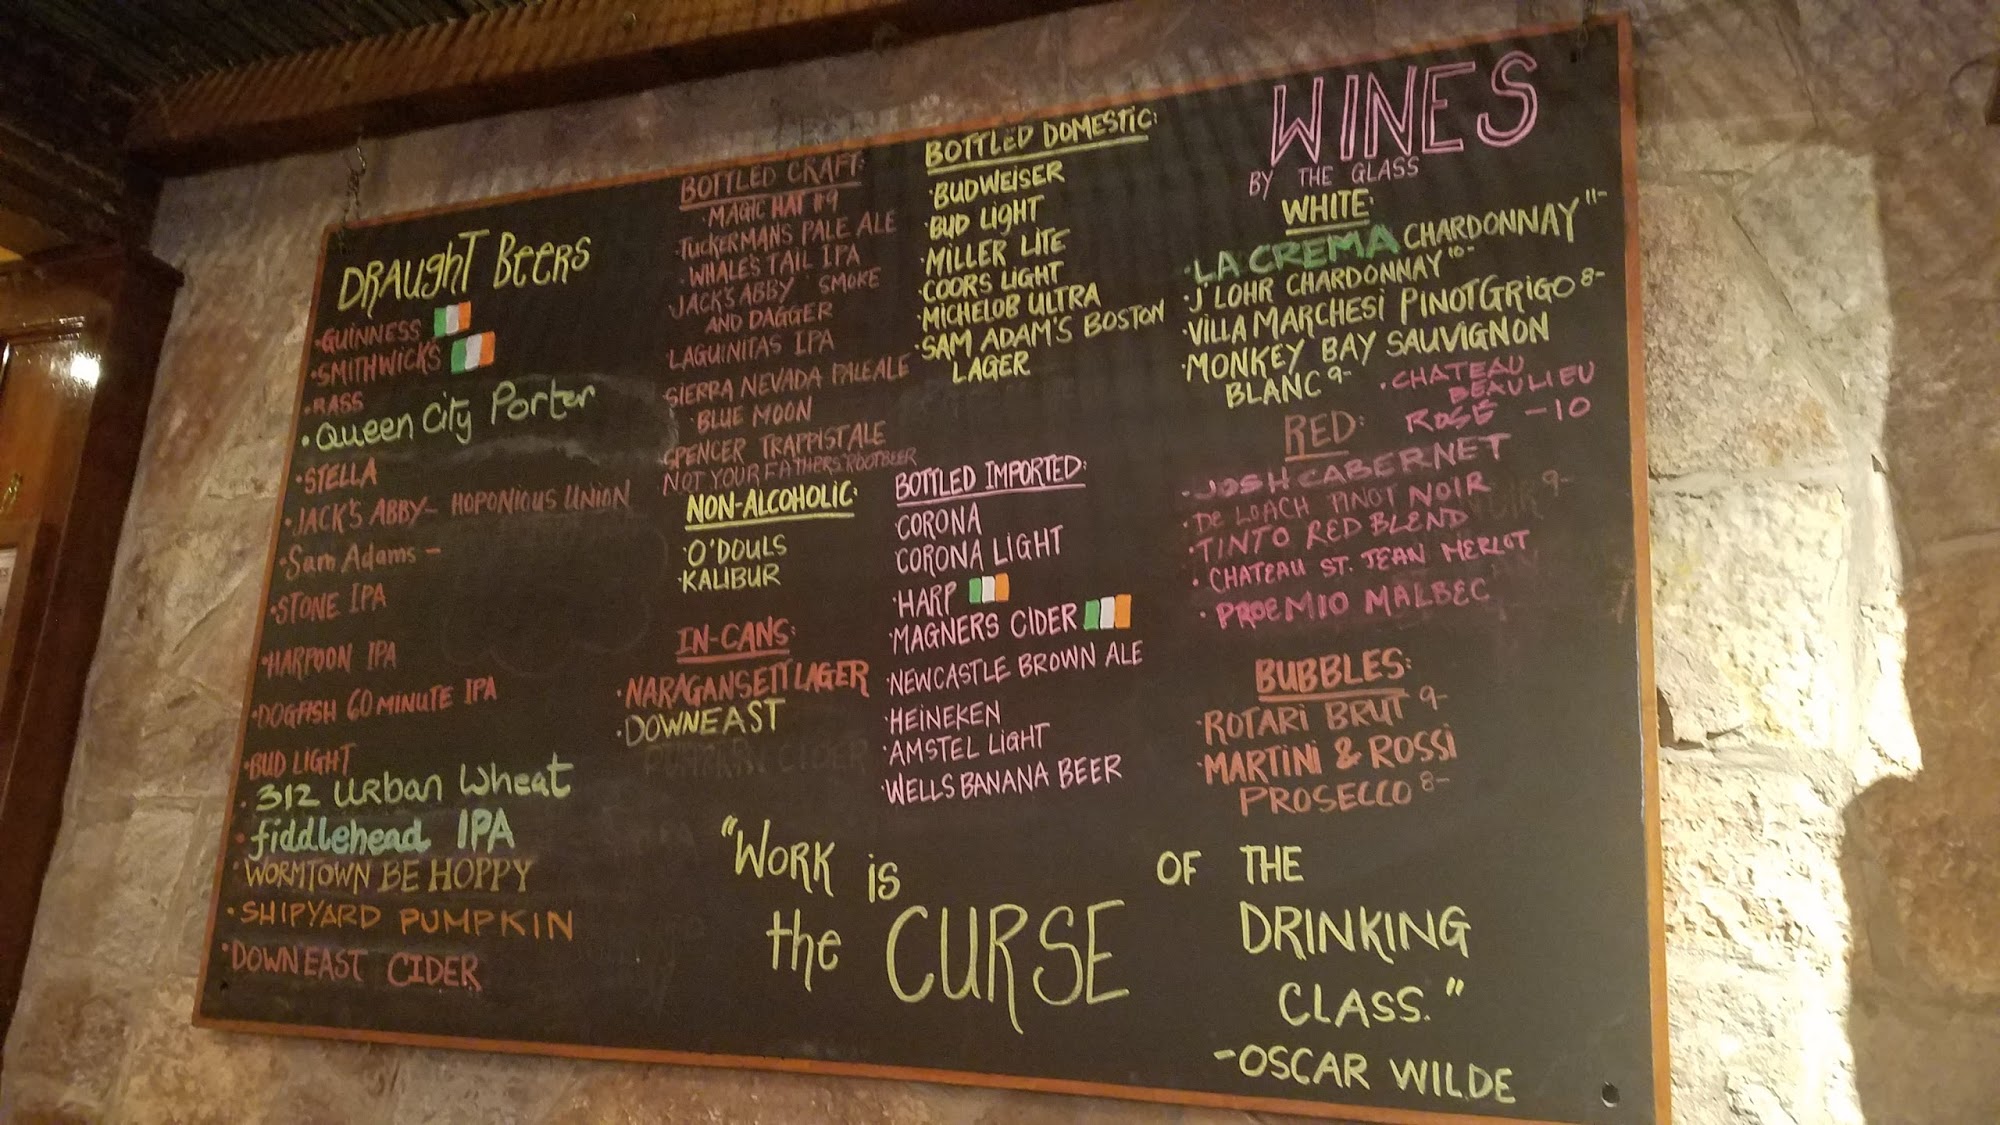 DRAUGHT BEERS
·GUINNESS
·SMITHWICK'S
·BASS
·Queen City Porter
·STELLA
·JACK'S ABBY- HOPONIOUS UNION
·Sam Adams -
·STONE IPA
·HARPOON IPA
·DOGFISH 60 MINUTE IPA
·BUD LIGHT
·312 Urban Wheat
·fiddlehead IPA
·WORMTOWN BE HOPPY
·SHIPYARD PUMPKIN
·DOWNEAST CIDER
BOTTLED CRAFT:
·MAGIC HAT #9
·TUCKERMAN'S PALE ALE
·WHALE'S TAIL IPA
·JACK'S ABBY SMOKE
AND DAGGER
·LAGUINITAS IPA
·SIERRA NEVADA PALE ALE
·BLUE MOON
SPENCER TRAPPIST ALE
NOT YOUR FATHERS ROOTBEER
NON-ALCOHOLIC:
·O'DOULS
·KALIBUR
IN-CANS:
·NARAGANSETT LAGER
·DOWNEAST
PUMPKIN CIDER
BOTTLED DOMESTIC:
·BUDWEISER
·BUD LIGHT
·MILLER LITE
·COORS LIGHT
·MICHELOB ULTRA
·SAM ADAM'S BOSTON
LAGER
BOTTLED IMPORTED:
·CORONA
·CORONA LIGHT
·HARP
·MAGNERS CIDER
·NEWCASTLE BROWN ALE
·HEINEKEN
·AMSTEL LIGHT
·WELLS BANANA BEER
WINES
BY THE GLASS
WHITE:
·LA CREMA CHARDONNAY 11-
·J LOHR CHARDONNAY 10-
·VILLA MARCHESI PINOT GRIGO 8-
·MONKEY BAY SAUVIGNON
BLANC 9-
·CHATEAU
BEAULIEU
ROSÉ -10
RED:
·JOSH CABERNET
·DE LOACH PINOT NOIR 9-
·TINTO RED BLEND
·CHATEAU ST. JEAN MERLOT
·PROEMIO MALBEC
BUBBLES:
·ROTARI BRUT 9-
·MARTINI & ROSSI
PROSECCO 8-
"WORK is
the CURSE
OF THE
DRINKING
CLASS."
-OSCAR WILDE